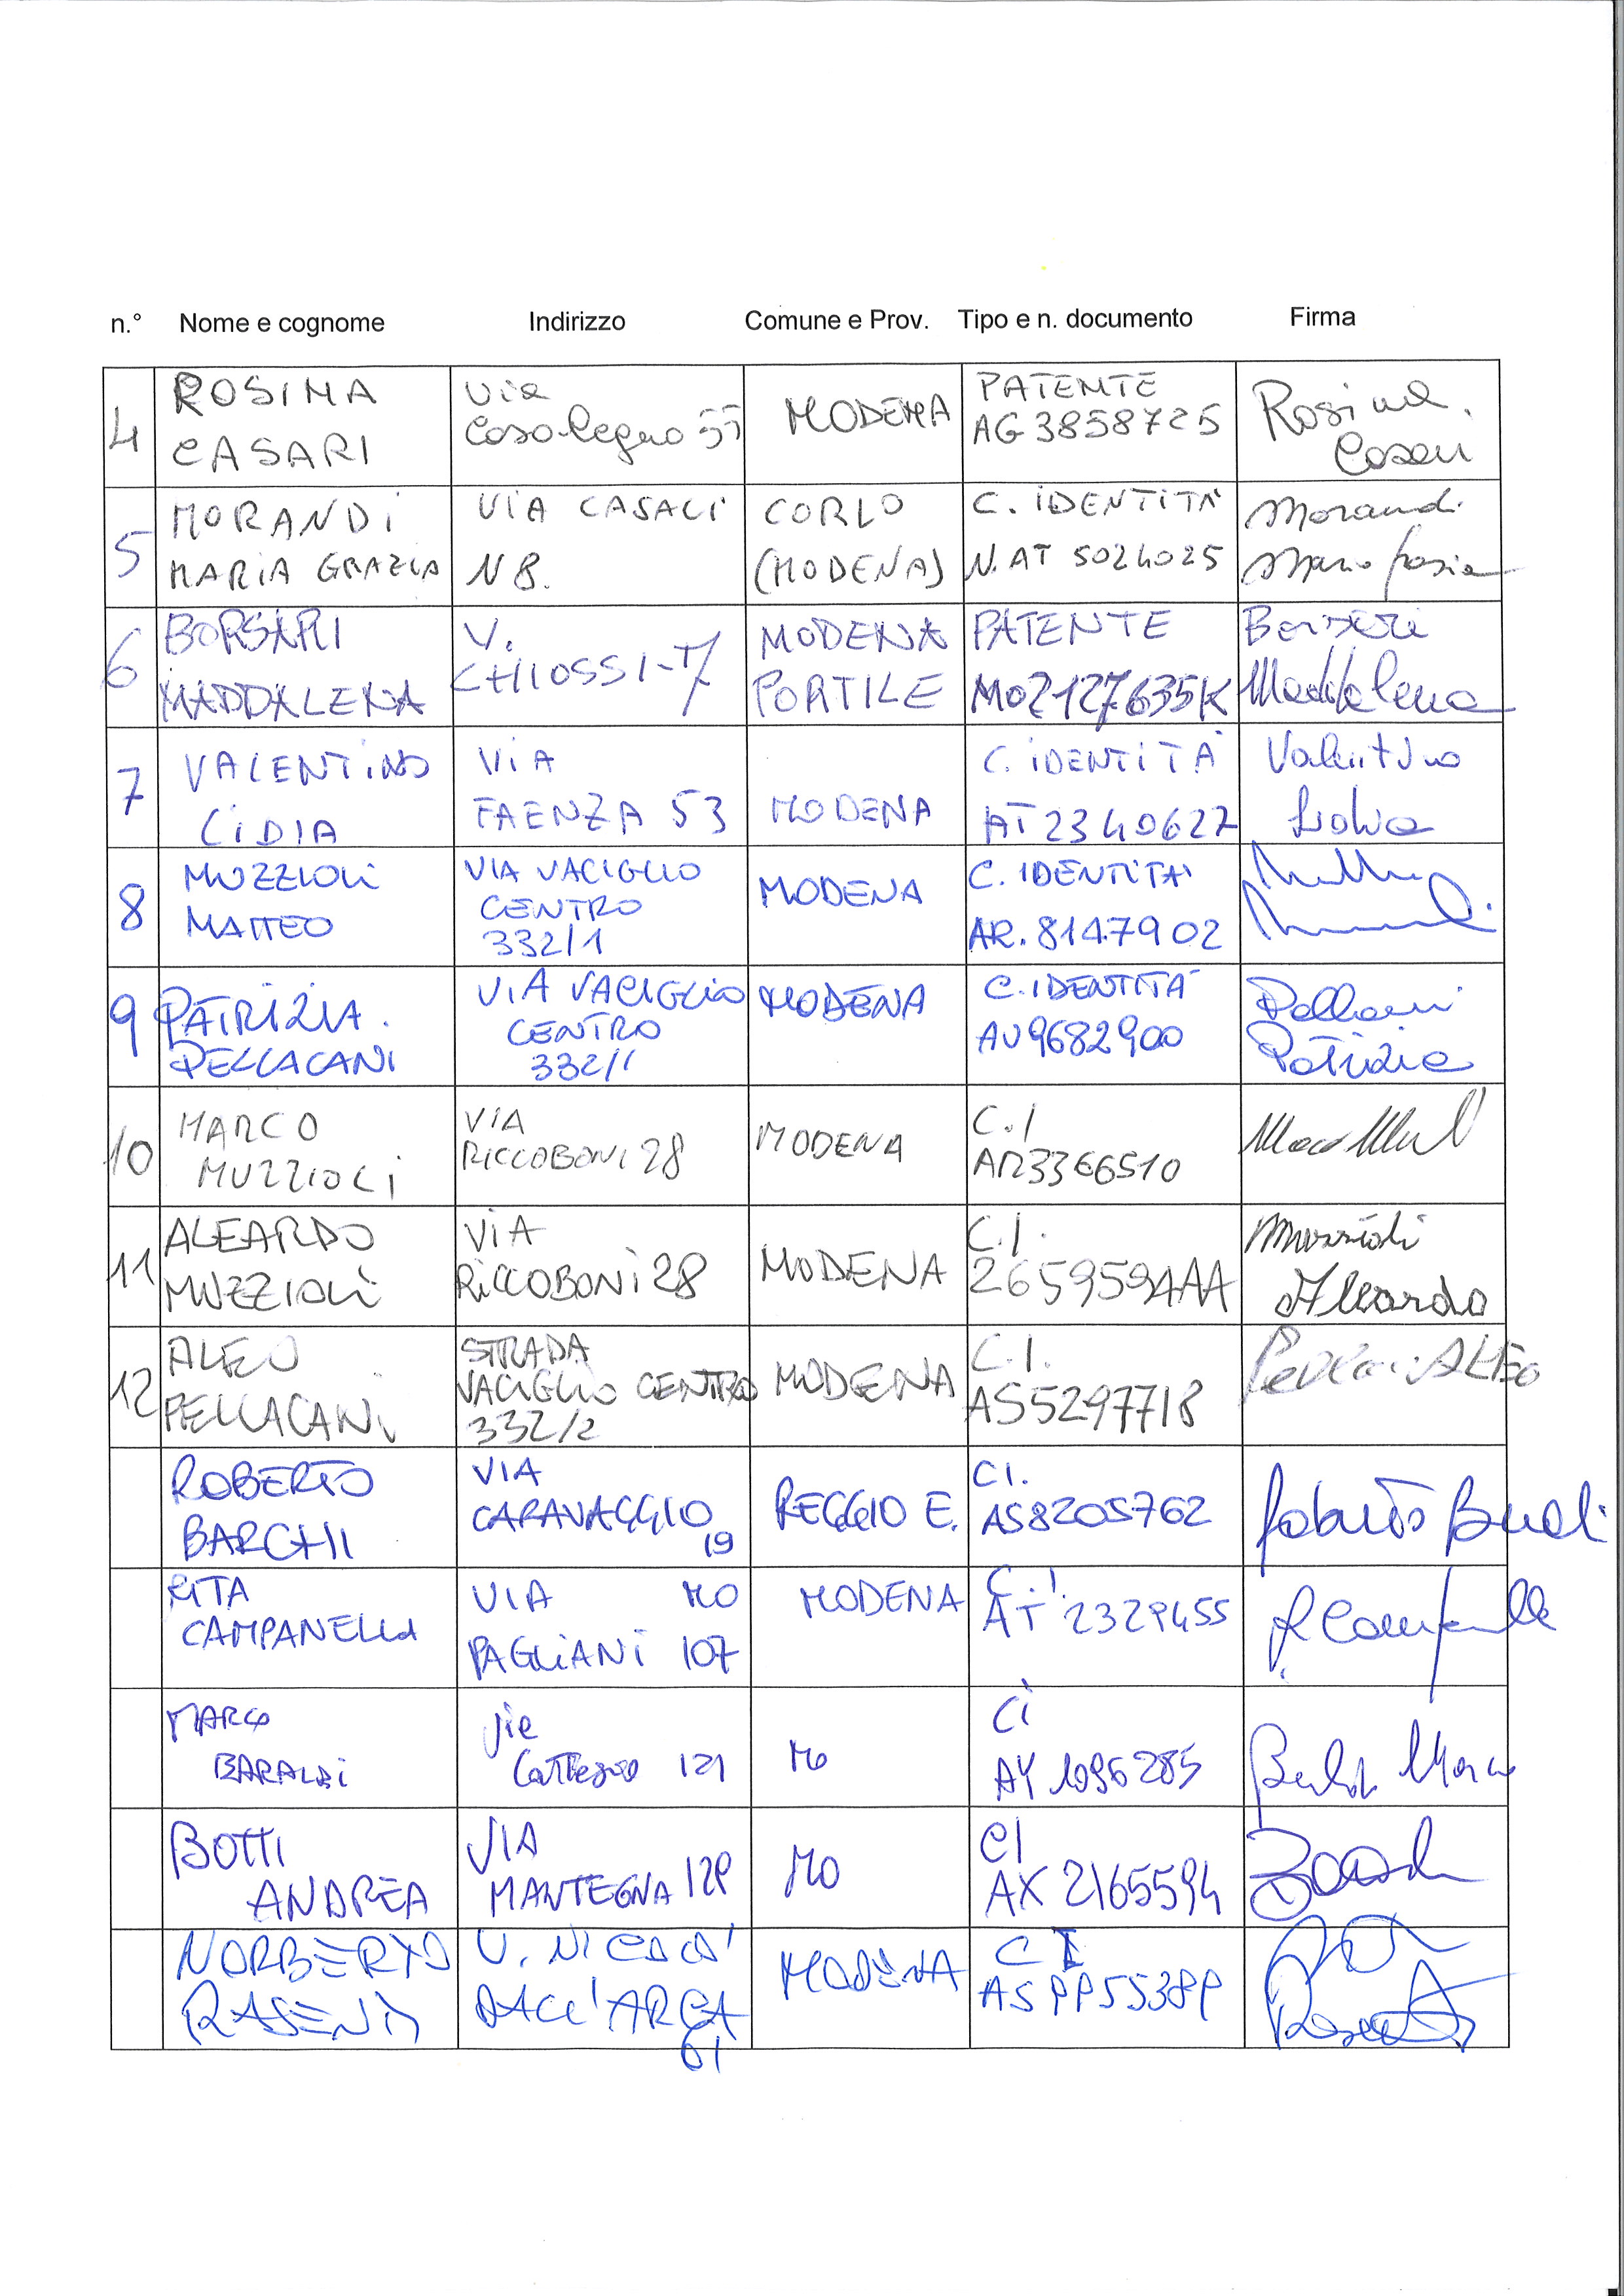 n.° Nome e cognome Indirizzo Comune e Prov. Tipo e n. documento Firma
4 ROSINA CASARI Via Casalegno 55 MODENA PATENTE AG3858725 Rosina Casari
5 MORANDI MARIA GRAZIA VIA CASALI N 8. CORLO (MODENA) C. IDENTITÀ N. AT 5024025 Morandi Maria Grazia
6 BORSARI MADDALENA V. CHIOSSI-7 MODENA PORTILE PATENTE MO2127635K Borsari Maddalena
7 VALENTINO LIDIA VIA FAENZA 53 MODENA C. IDENTITÀ AT 2340627 Valentino Lidia
8 MUZZIOLI MATTEO VIA VACIGLIO CENTRO 332/1 MODENA C. IDENTITA' AR. 8147902
9 PATRIZIA. PELLACANI VIA VACIGLIO CENTRO 332/1 MODENA C. IDENTITÀ AU9682900 Pellacani Patrizia
10 MARCO MUZZIOLI VIA RICCOBONI 28 MODENA C.I AR3366510
11 ALEARDO MUZZIOLI VIA RICCOBONI 28 MODENA C.I. 2659594AA Muzzioli Aleardo
12 ALEO PELLACANI STRADA VACIGLIO CENTRO 332/2 MODENA C.I. AS5297718
ROBERTO BARGHI VIA CARAVAGGIO 19 REGGIO E. CI. AS8205762 Roberto
RITA CAMPANELLA VIA MO PAGLIANI 107 MODENA C.I. AT 2329455 R Campanella
MARCO BARALDI Vie 121 MO CI AY 1096285 Marco
BOTTI ANDREA VIA MANTEGNA 129 MO CI AX 2165594
NORBERTO V. NICOLO' DALL'ARCA 61 MODENA C I AS 9955389